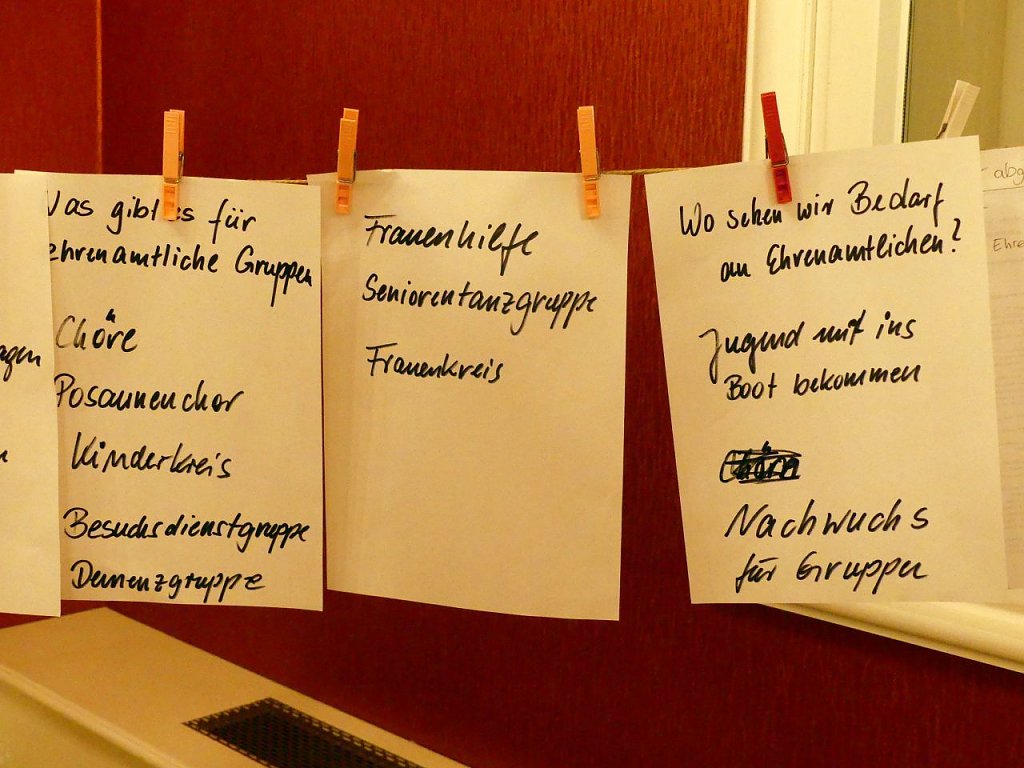 agen
n
Was gibt es für
ehrenamtliche Gruppen
Chöre
Posaunenchor
Kinderkreis
Besuchsdienstgruppe
Demenzgruppe
Frauenhilfe
Seniorentanzgruppe
Frauenkreis
Wo sehen wir Bedarf
an Ehrenamtlichen?
Jugend mit ins
Boot bekommen
Nachwuchs
für Gruppen
abg
Ehre